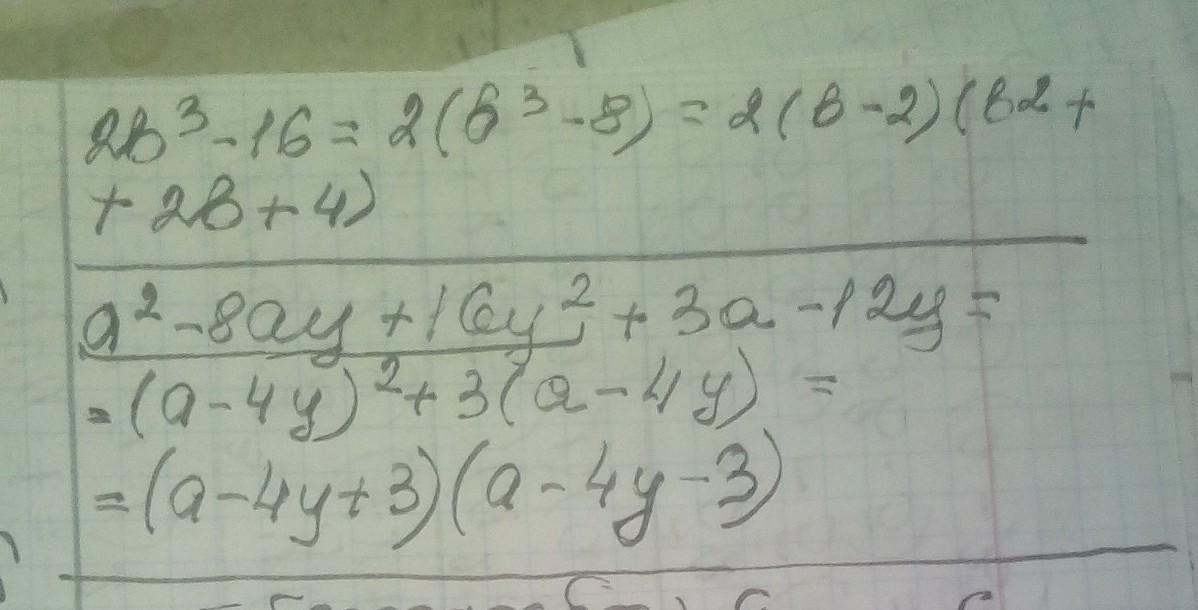 2b³-16=2(b³-8)=2(b-2)(b2+
+2b+4)
a²-8ay+16y²+3a-12y=
=(a-4y)²+3(a-4y)=
=(a-4y+3)(a-4y-3)